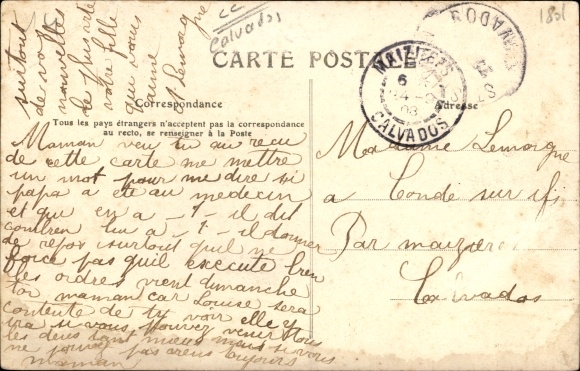 1801
CC
Calvados
CARTE POSTALE
MAIZIERES
6
08
CALVADOS
Correspondance
Tous les pays étrangers n'acceptent pas la correspondance
au recto, se renseigner à la Poste
Adresse
Maman veu tu au recu
de cette carte me mettre
un mot pour me dire si
papa a ete au medecin
et qui en a - t - il dit
combien lui a - t - il donner
de repos surtout quil ne
force pas quil execute bien
les ordres vient dimanche
toi maman car Louise sera
contente de ty voir elle y
ira si vous pouvez venir tous
les deux sont mieux mais si vous
ne pouvez pas toujours
maman
surtout
de vos
nouvelles
Je suis
votre fille
qui vous
aime
Lemoigne
Madame Lemoigne
a
Condé sur ifs
Par maizières
Calvados